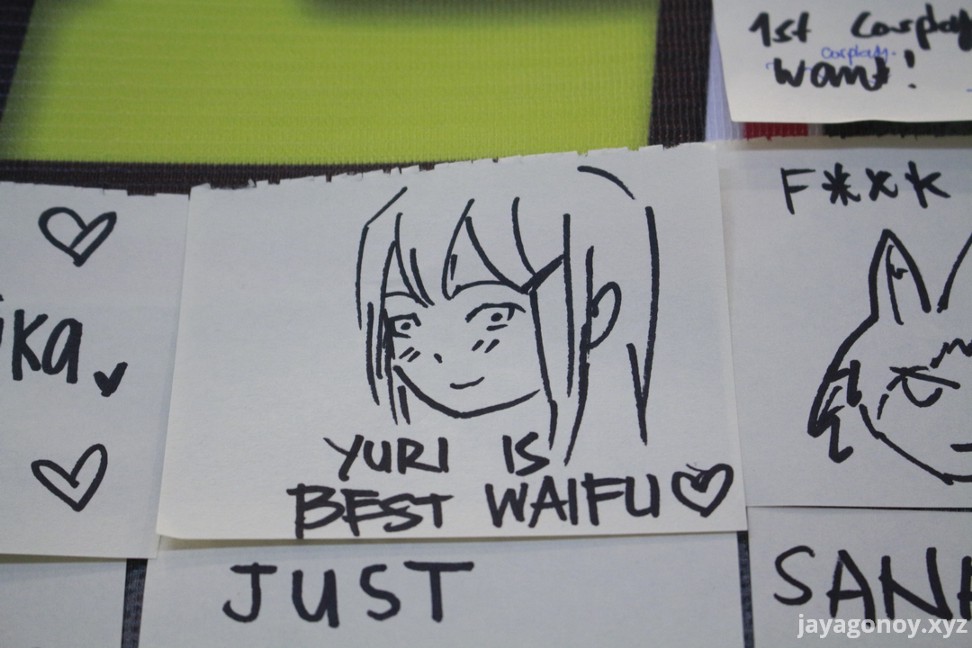 1st Cosplay
Cosplay.
want!
F**K
ika
YURI IS
BEST WAIFU
JUST
SAN
jayagonoy.xyz